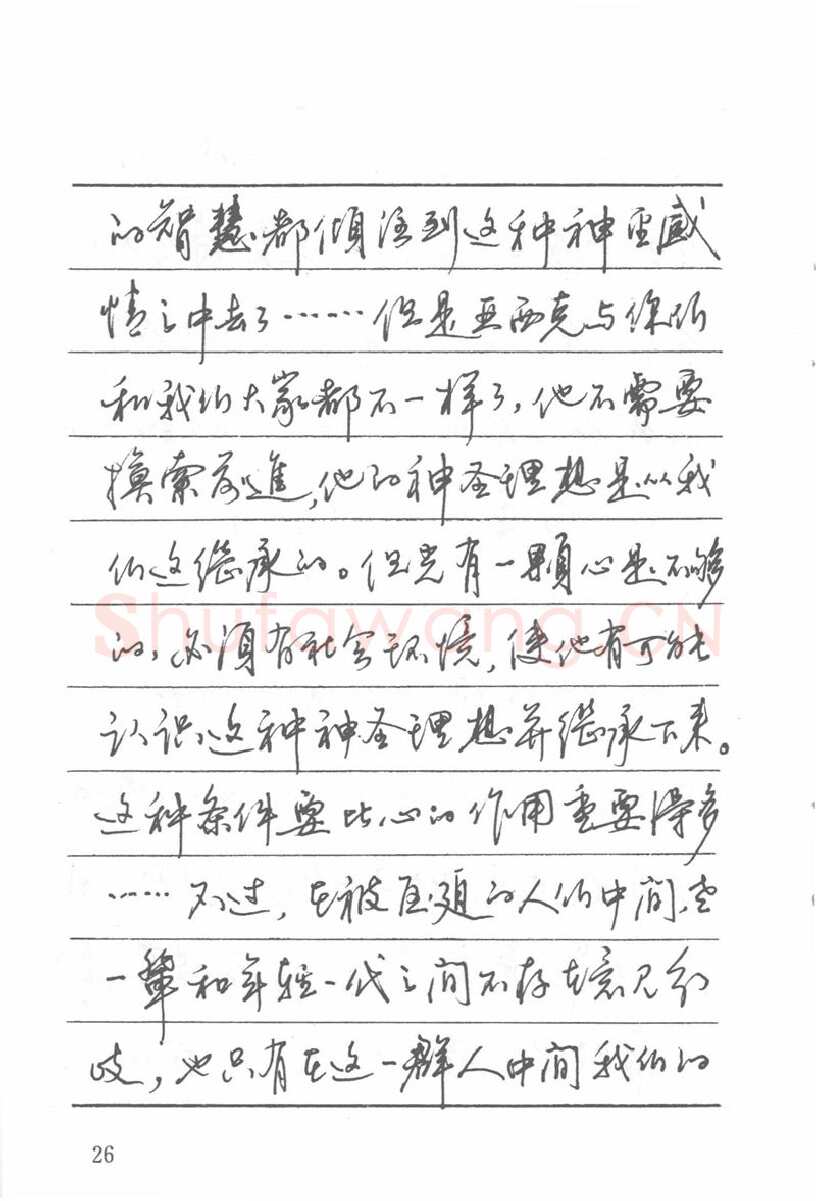 的智慧都倾注到这种神圣感
情之中去了……但是亚西克与你们
和我们大家都不一样了,他不需要
摸索前進,他的神圣理想是从我
们这继承的。但光有一颗心是不够
的,必须有社会环境,使他有可能
认识这种神圣理想并继承下来。
这种条件要比心的作用重要得多
……不过,在被压迫的人们中间,老
一辈和年轻一代之间不存在意见分
歧,也只有在这一群人中间我们的
Shufawang.CN
26